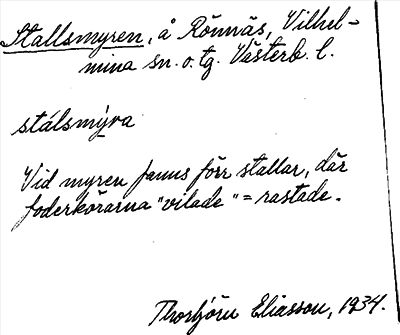 Stallsmyren, å Rönnäs, Vilhel-
mina sn. o. tg. Västerb. l.
stálsmýra
Vid myren fanns förr stallar, där
foderkörarna "vilade" = rastade.
Thorbjörn Eliasson, 1934.